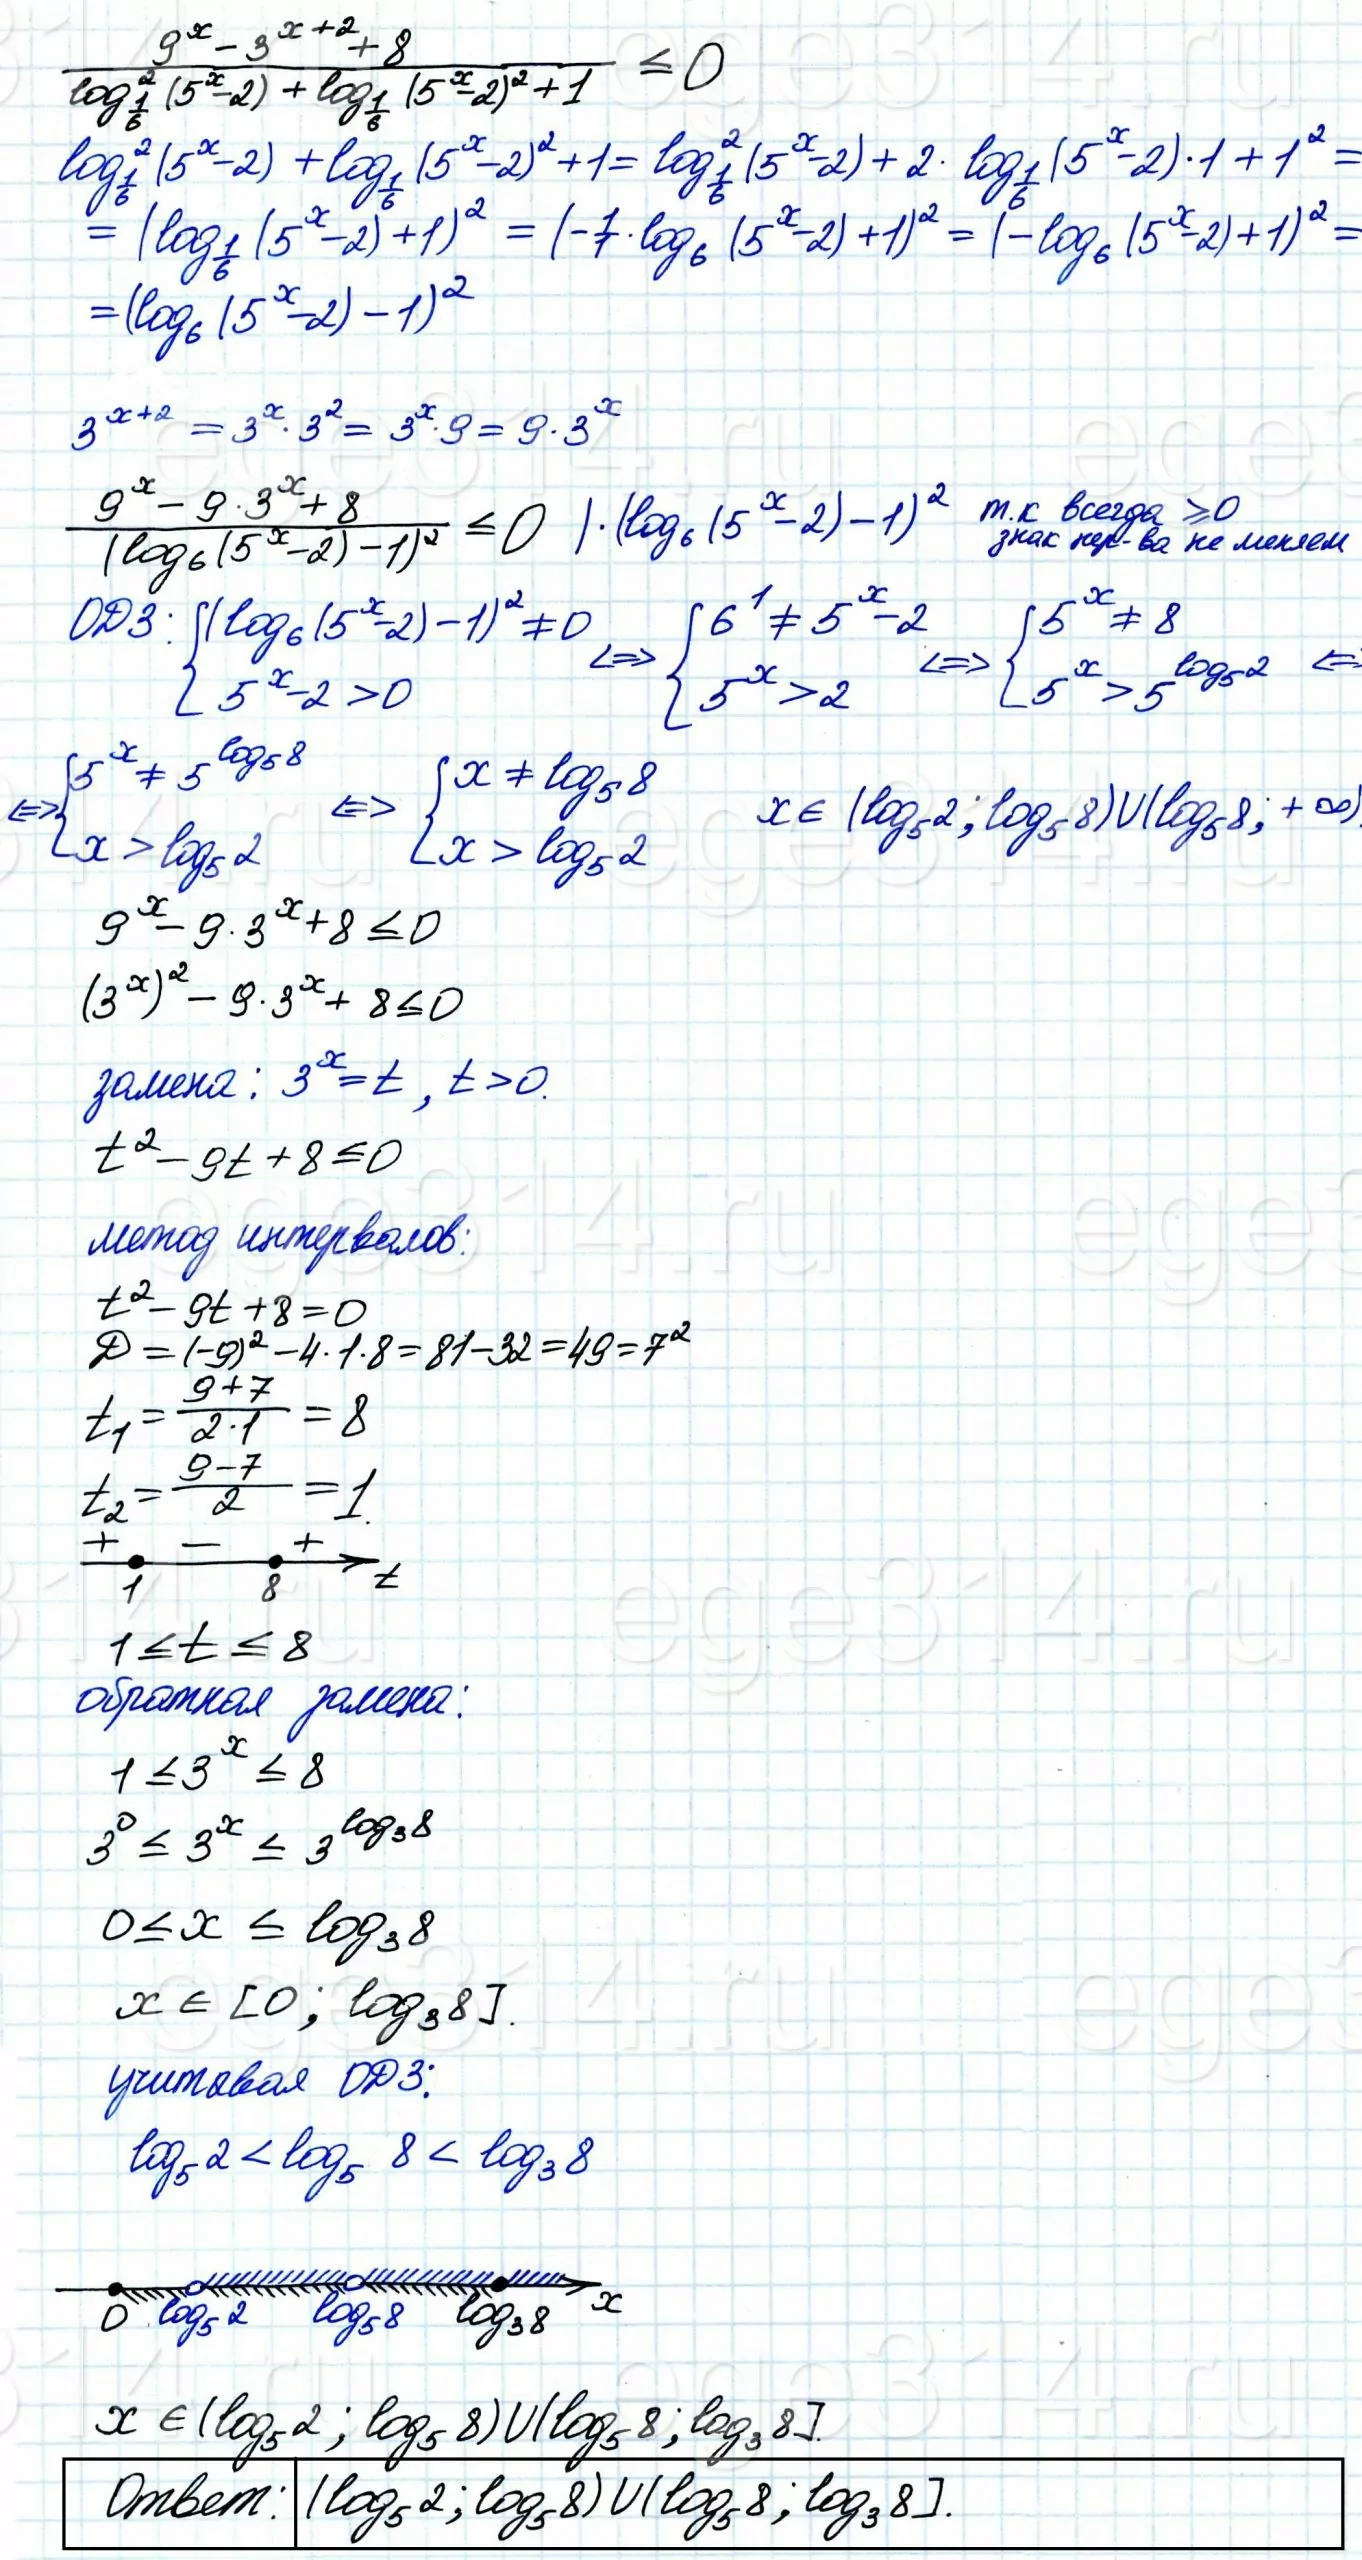 (9^x − 3^(x+2) + 8) / (log²_(1/6) (5^x−2) + log_(1/6) (5^x−2)² + 1) ≤ 0
log²_(1/6) (5^x−2) + log_(1/6) (5^x−2)² + 1 = log²_(1/6) (5^x−2) + 2 · log_(1/6) (5^x−2) · 1 + 1² =
= (log_(1/6) (5^x−2) + 1)² = (−1/1 · log₆ (5^x−2) + 1)² = (−log₆ (5^x−2) + 1)² =
= (log₆ (5^x−2) − 1)²
3^(x+2) = 3^x · 3² = 3^x · 9 = 9 · 3^x
(9^x − 9 · 3^x + 8) / (log₆ (5^x−2) − 1)² ≤ 0 | · (log₆ (5^x−2) − 1)² т.к всегда ≥0
знак нер-ва не меняем
ОДЗ: { (log₆ (5^x−2) − 1)² ≠ 0 ; 5^x−2 > 0 <=> { 6¹ ≠ 5^x−2 ; 5^x > 2 <=> { 5^x ≠ 8 ; 5^x > 5^(log₅2) <=>
<=> { 5^x ≠ 5^(log₅8) ; x > log₅2 <=> { x ≠ log₅8 ; x > log₅2 x ∈ (log₅2; log₅8) ∪ (log₅8; +∞).
9^x − 9 · 3^x + 8 ≤ 0
(3^x)² − 9 · 3^x + 8 ≤ 0
замена: 3^x = t, t > 0.
t² − 9t + 8 ≤ 0
метод интервалов:
t² − 9t + 8 = 0
D = (−9)² − 4·1·8 = 81−32 = 49 = 7²
t₁ = (9+7)/(2·1) = 8
t₂ = (9−7)/2 = 1.
+ − +
1 8 t
1 ≤ t ≤ 8
обратная замена:
1 ≤ 3^x ≤ 8
3⁰ ≤ 3^x ≤ 3^(log₃8)
0 ≤ x ≤ log₃8
x ∈ [0; log₃8].
учитывая ОДЗ:
log₅2 < log₅ 8 < log₃8
0 log₅2 log₅8 log₃8 x
x ∈ (log₅2; log₅8) ∪ (log₅8; log₃8].
Ответ: (log₅2; log₅8) ∪ (log₅8; log₃8].
ege314.ru